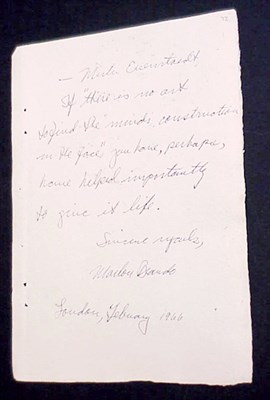 — Mister Eisenstaedt
If there is no art
to find the "minds construction
in the face" you have, perhaps,
have helped importantly
to give it life.
Sincere regards,
Marlon Brando
London, February 1966